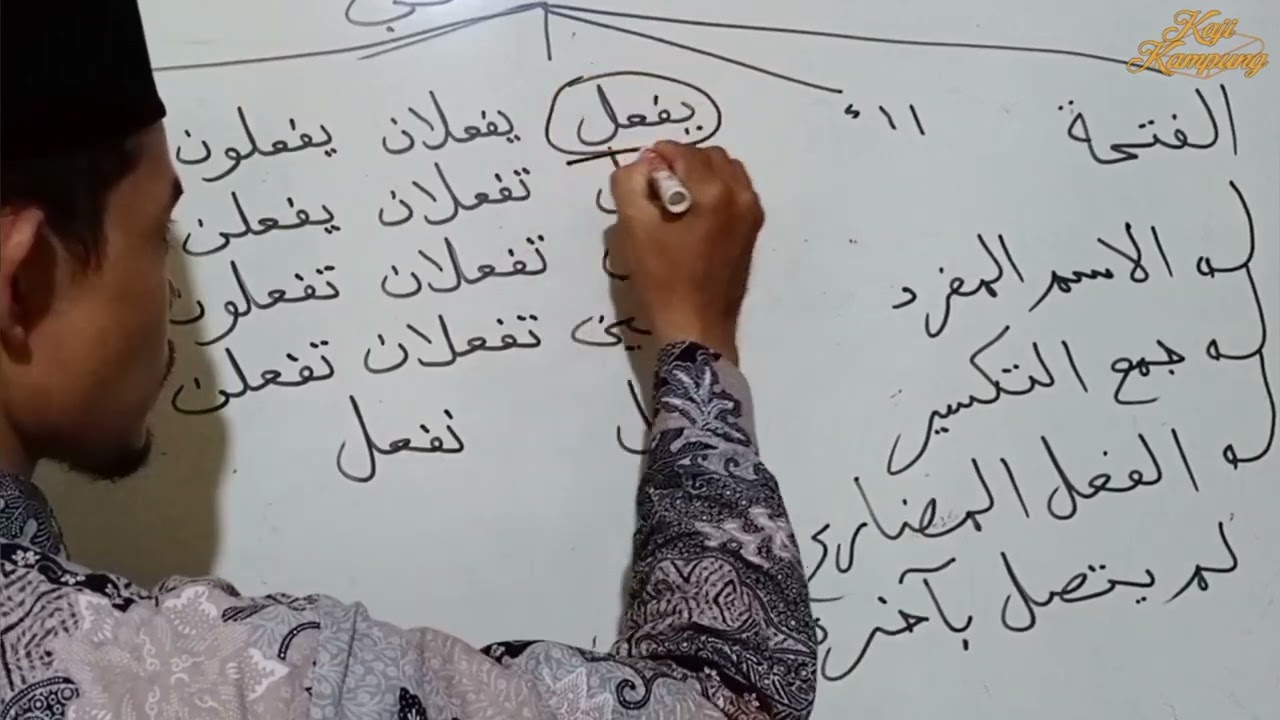 Kaji
Kampung
الفتحة
الاسم المفرد
جمع التكسير
الفعل المضارع
لم يتصل بآخره
يفعل يفعلان يفعلون
تفعلان يفعلن
تفعلان تفعلون
تفعلان تفعلن
نفعل